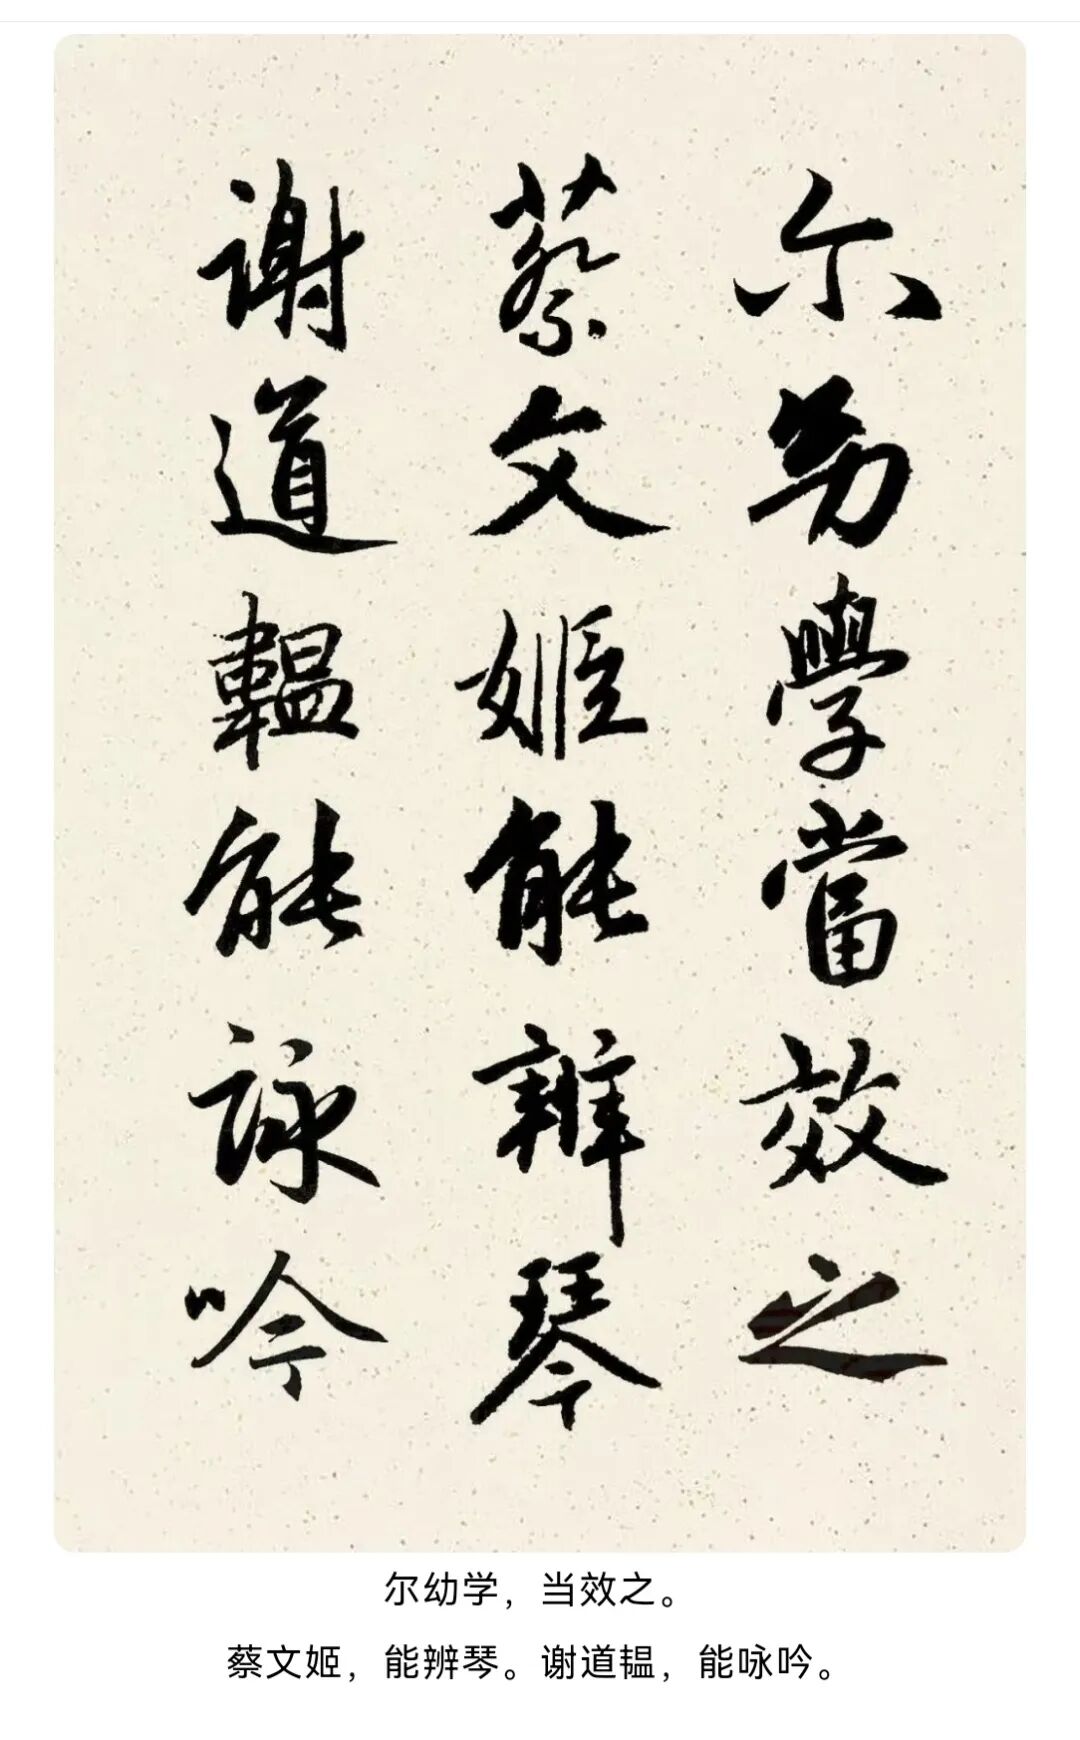 尔㓜學當效之
蔡文姬能辨琴
谢道韫能詠吟
尔幼学，当效之。
蔡文姬，能辨琴。谢道韫，能咏吟。